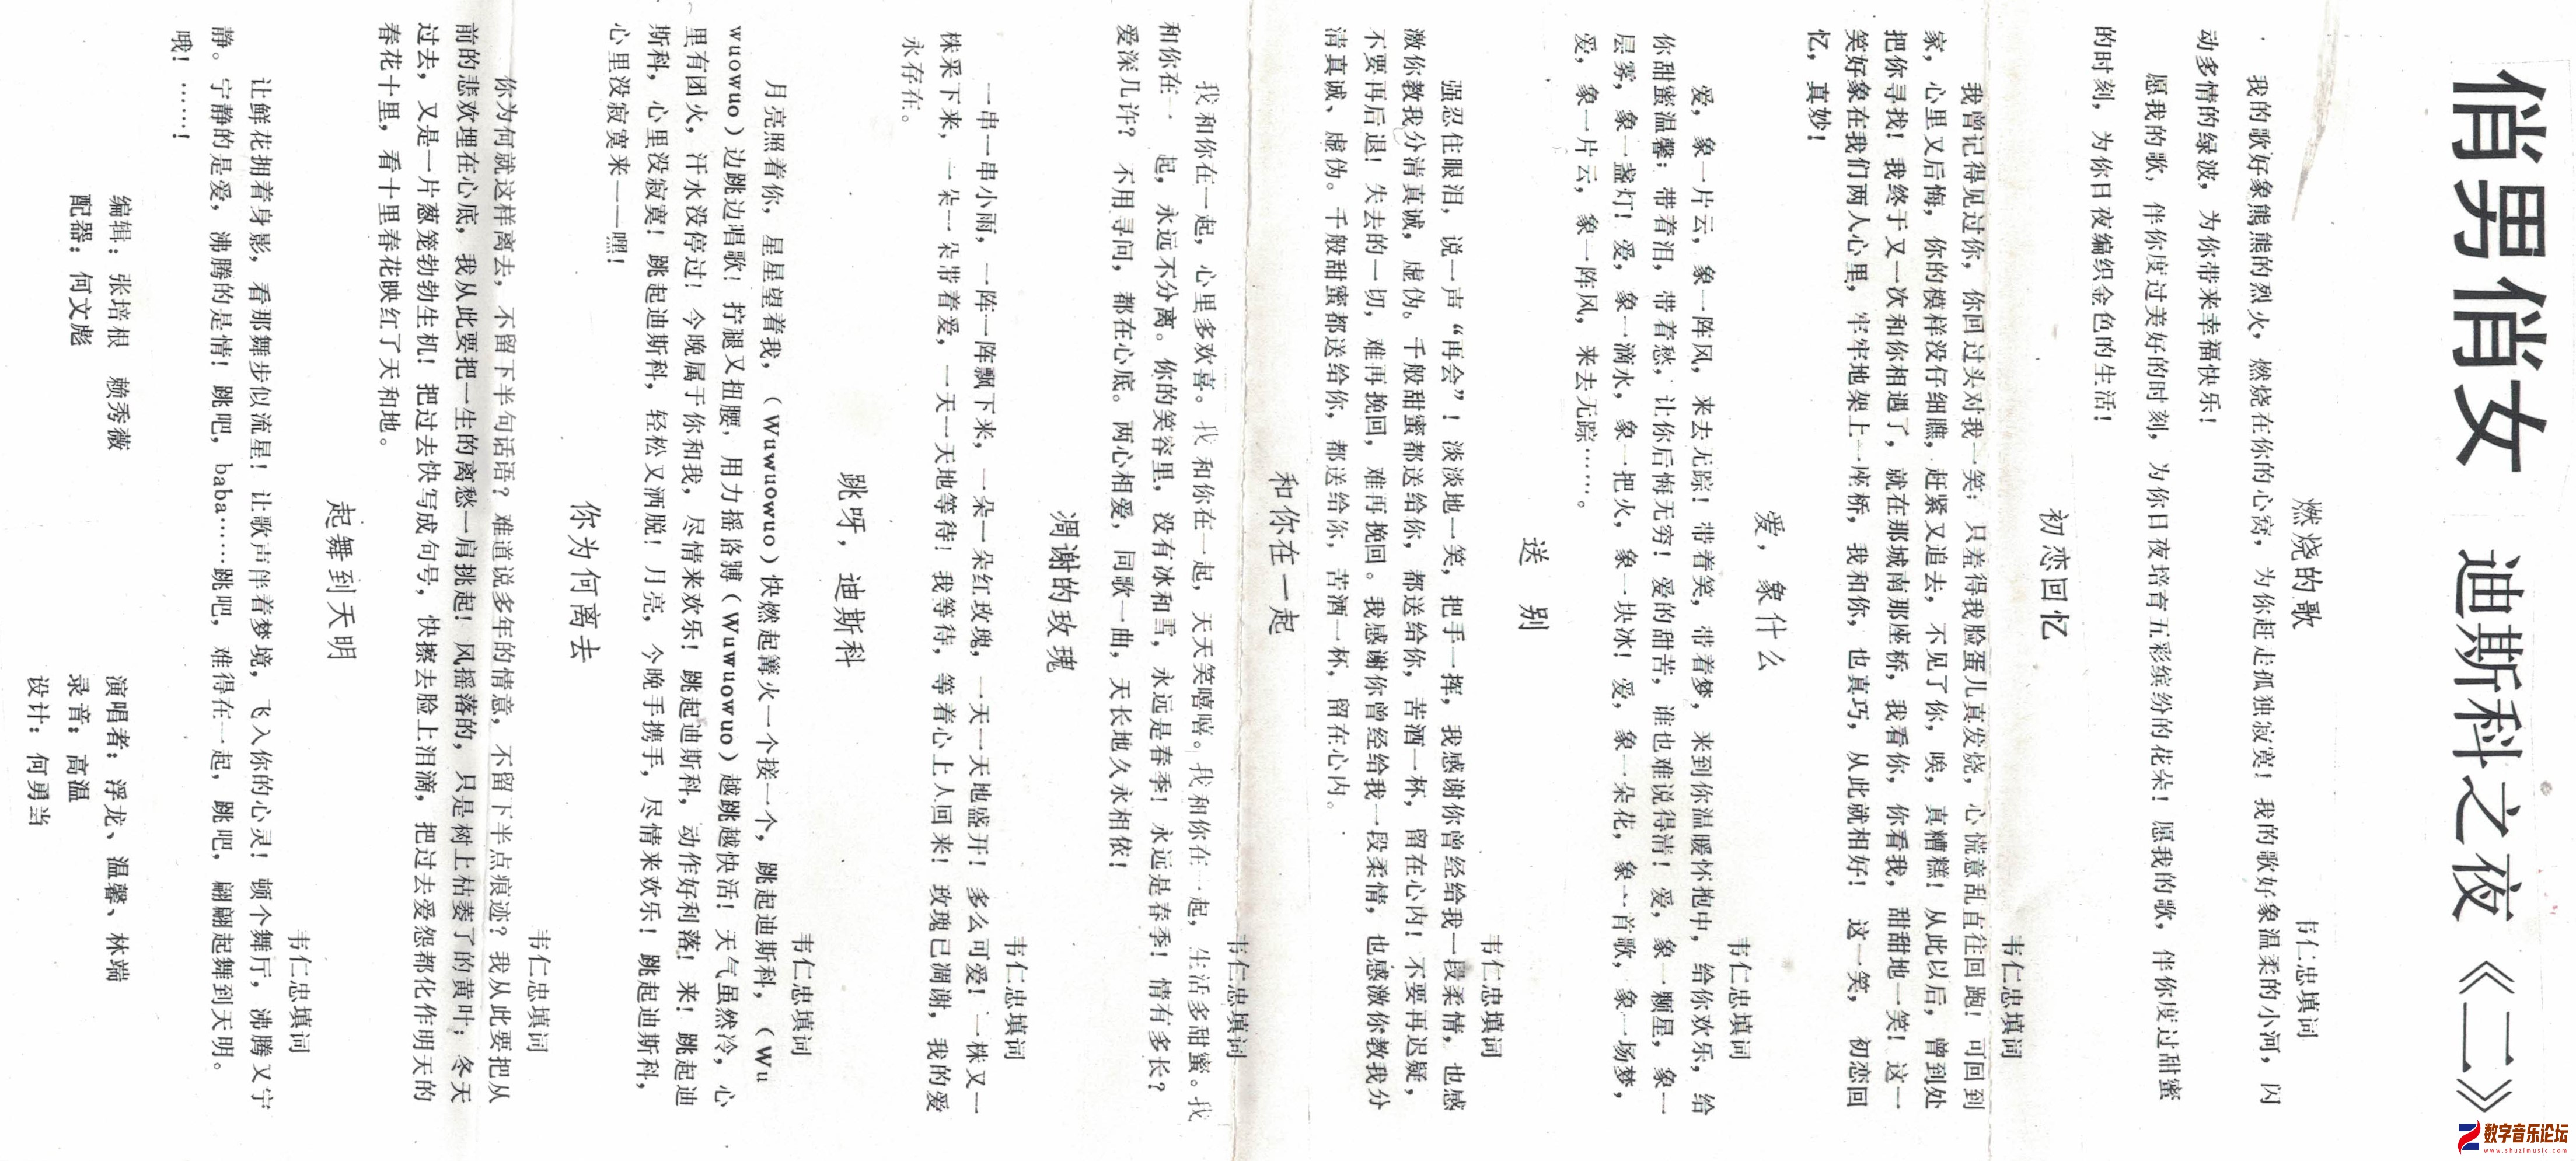 俏男俏女 迪斯科之夜《二》
燃烧的歌
韦仁忠填词
我的歌好象熊熊的烈火，燃烧在你的心窝，为你赶走孤独寂寞！我的歌好象温柔的小河，闪
动多情的绿波，为你带来幸福快乐！
愿我的歌，伴你度过美好的时刻，为你日夜培育五彩缤纷的花朵！愿我的歌，伴你度过甜蜜
的时刻，为你日夜编织金色的生活！
初恋回忆
韦仁忠填词
我曾记得见过你，你回过头对我一笑；只羞得我脸蛋儿真发烧，心慌意乱直往回跑！可回到
家，心里又后悔，你的模样没仔细瞧，赶紧又追去，不见了你，唉，真糟糕！从此以后，曾到处
把你寻找！我终于又一次和你相遇了，就在那城南那座桥，我看你，你看我，甜甜地一笑！这一
笑好象在我们两人心里，牢牢地架上一座桥，我和你，也真巧，从此就相好！ 这一笑， 初恋回
忆，真妙！
爱，象什么
韦仁忠填词
爱，象一片云，象一阵风，来去无踪！带着笑，带着梦，来到你温暖怀抱中，给你欢乐，给
你甜蜜温馨；带着泪，带着愁，让你后悔无穷！爱的甜苦，谁也难说得清！爱，象一颗星，象一
层雾，象一盏灯！爱，象一滴水，象一把火，象一块冰！爱，象一朵花，象一首歌，象一场梦，
爱，象一片云，象一阵风，来去无踪……。
送 别
韦仁忠填词
强忍住眼泪，说一声“再会”！淡淡地一笑，把手一挥，我感谢你曾经给我一段柔情，也感
激你教我分清真诚，虚伪。千般甜蜜都送给你，都送给你，苦酒一杯，留在心内！不要再迟疑，
不要再后退！失去的一切，难再挽回，难再挽回。我感谢你曾经给我一段柔情，也感激你教我分
清真诚、虚伪。千般甜蜜都送给你，都送给你，苦酒一杯，留在心内。
和你在一起
韦仁忠填词
我和你在一起，心里多欢喜。我和你在一起，天天笑嘻嘻。我和你在一起，生活多甜蜜。我
和你在一起，永远不分离。你的笑容里，没有冰和雪，永远是春季！永远是春季！情有多长？
爱深几许？ 不用寻问，都在心底。两心相爱，同歌一曲，天长地久永相依！
凋谢的玫瑰
韦仁忠填词
一串一串小雨，一阵一阵飘下来，一朵一朵红玫瑰，一天一天地盛开！多么可爱！一株又一
株采下来，一朵一朵带着爱，一天一天地等待！我等待，等着心上人回来！玫瑰已凋谢，我的爱
永存在。
跳呀，迪斯科
韦仁忠填词
月亮照着你，星星望着我，（Wuwuowuo）快燃起篝火一个接一个，跳起迪斯科，（Wu
wuowuo）边跳边唱歌！拧腿又扭腰，用力摇胳膊（Wuwuowuo）越跳越快活！天气虽然冷，心
里有团火，汗水没停过！今晚属于你和我，尽情来欢乐！跳起迪斯科，动作好利落！来！跳起迪
斯科，心里没寂寞！跳起迪斯科，轻松又洒脱！月亮，今晚手携手，尽情来欢乐！跳起迪斯科，
心里没寂寞来——嘿！
你为何离去
韦仁忠填词
你为何就这样离去，不留下半句话语？难道说多年的情意，不留下半点痕迹？我从此要把从
前的悲欢埋在心底，我从此要把一生的离愁一肩挑起！风摇落的，只是树上枯萎了的黄叶；冬天
过去，又是一片葱笼勃勃生机！把过去快写成句号，快擦去脸上泪滴，把过去爱怨都化作明天的
春花十里，看十里春花映红了天和地。
起舞到天明
韦仁忠填词
让鲜花拥着身影，看那舞步似流星！让歌声伴着梦境，飞入你的心灵！顿个舞厅，沸腾又宁
静。宁静的是爱，沸腾的是情！跳吧，baba……跳吧，难得在一起，跳吧，翩翩起舞到天明。
哦！……！
编辑：张培根 赖秀薇
配器：何文彪
演唱者：浮龙、温馨、林端
录音：高温
设计：何勇当
数字音乐论坛
www.shuzimusic.com